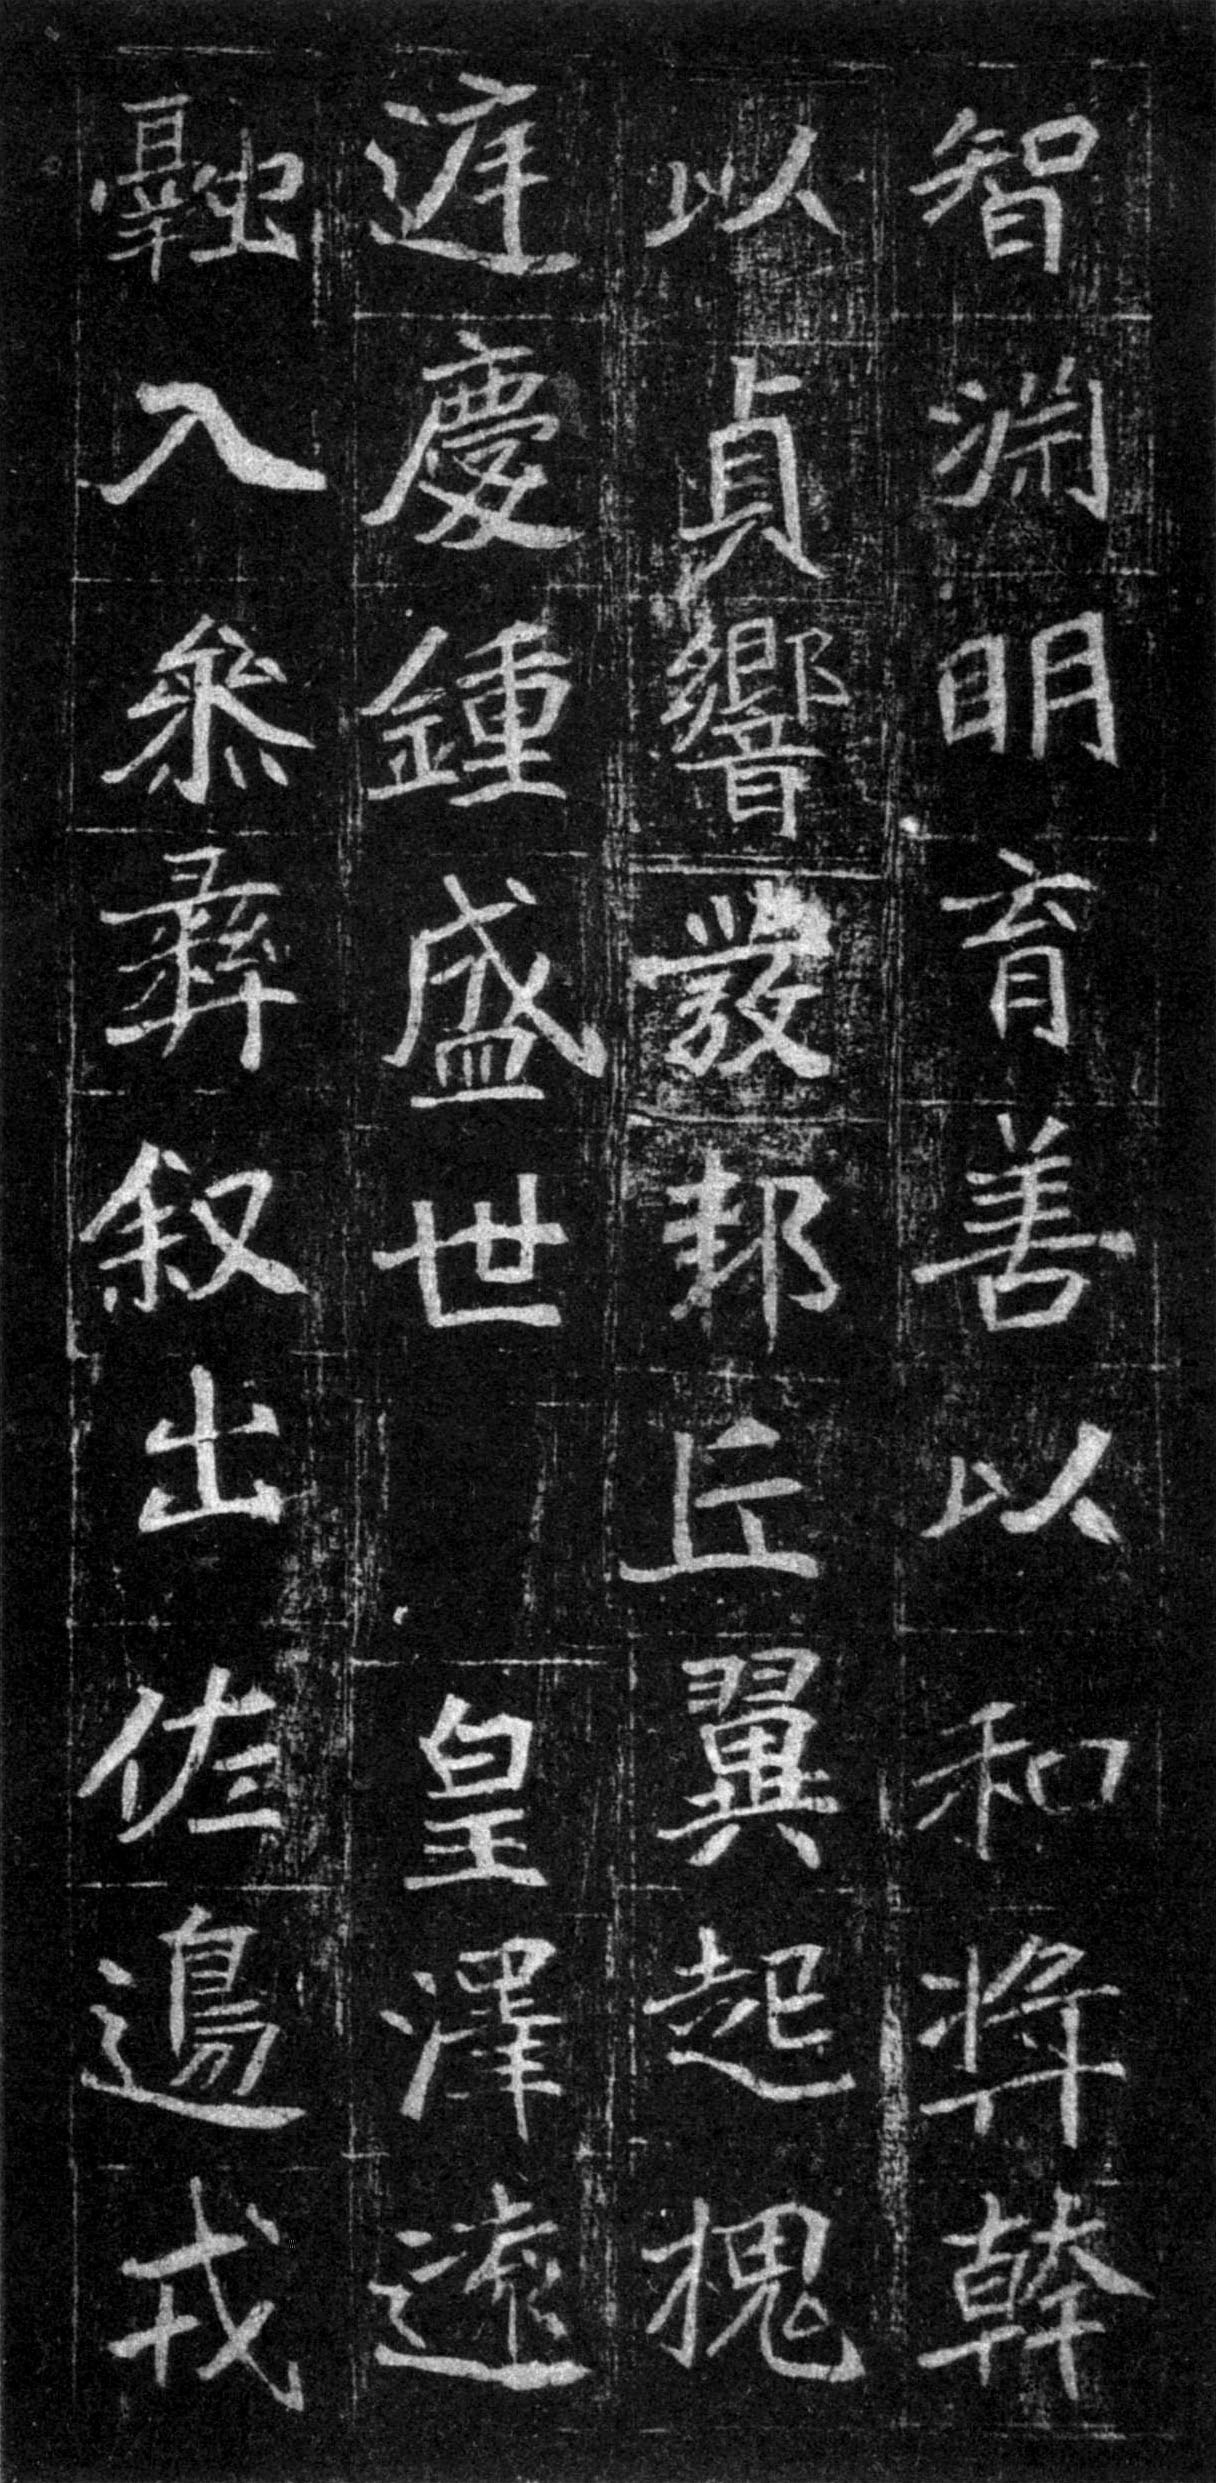 智淵明育善以和將幹
以貞響發邦丘翼起槐
庭慶鍾盛世 皇澤遠
融入參彝叙出佐邊戎